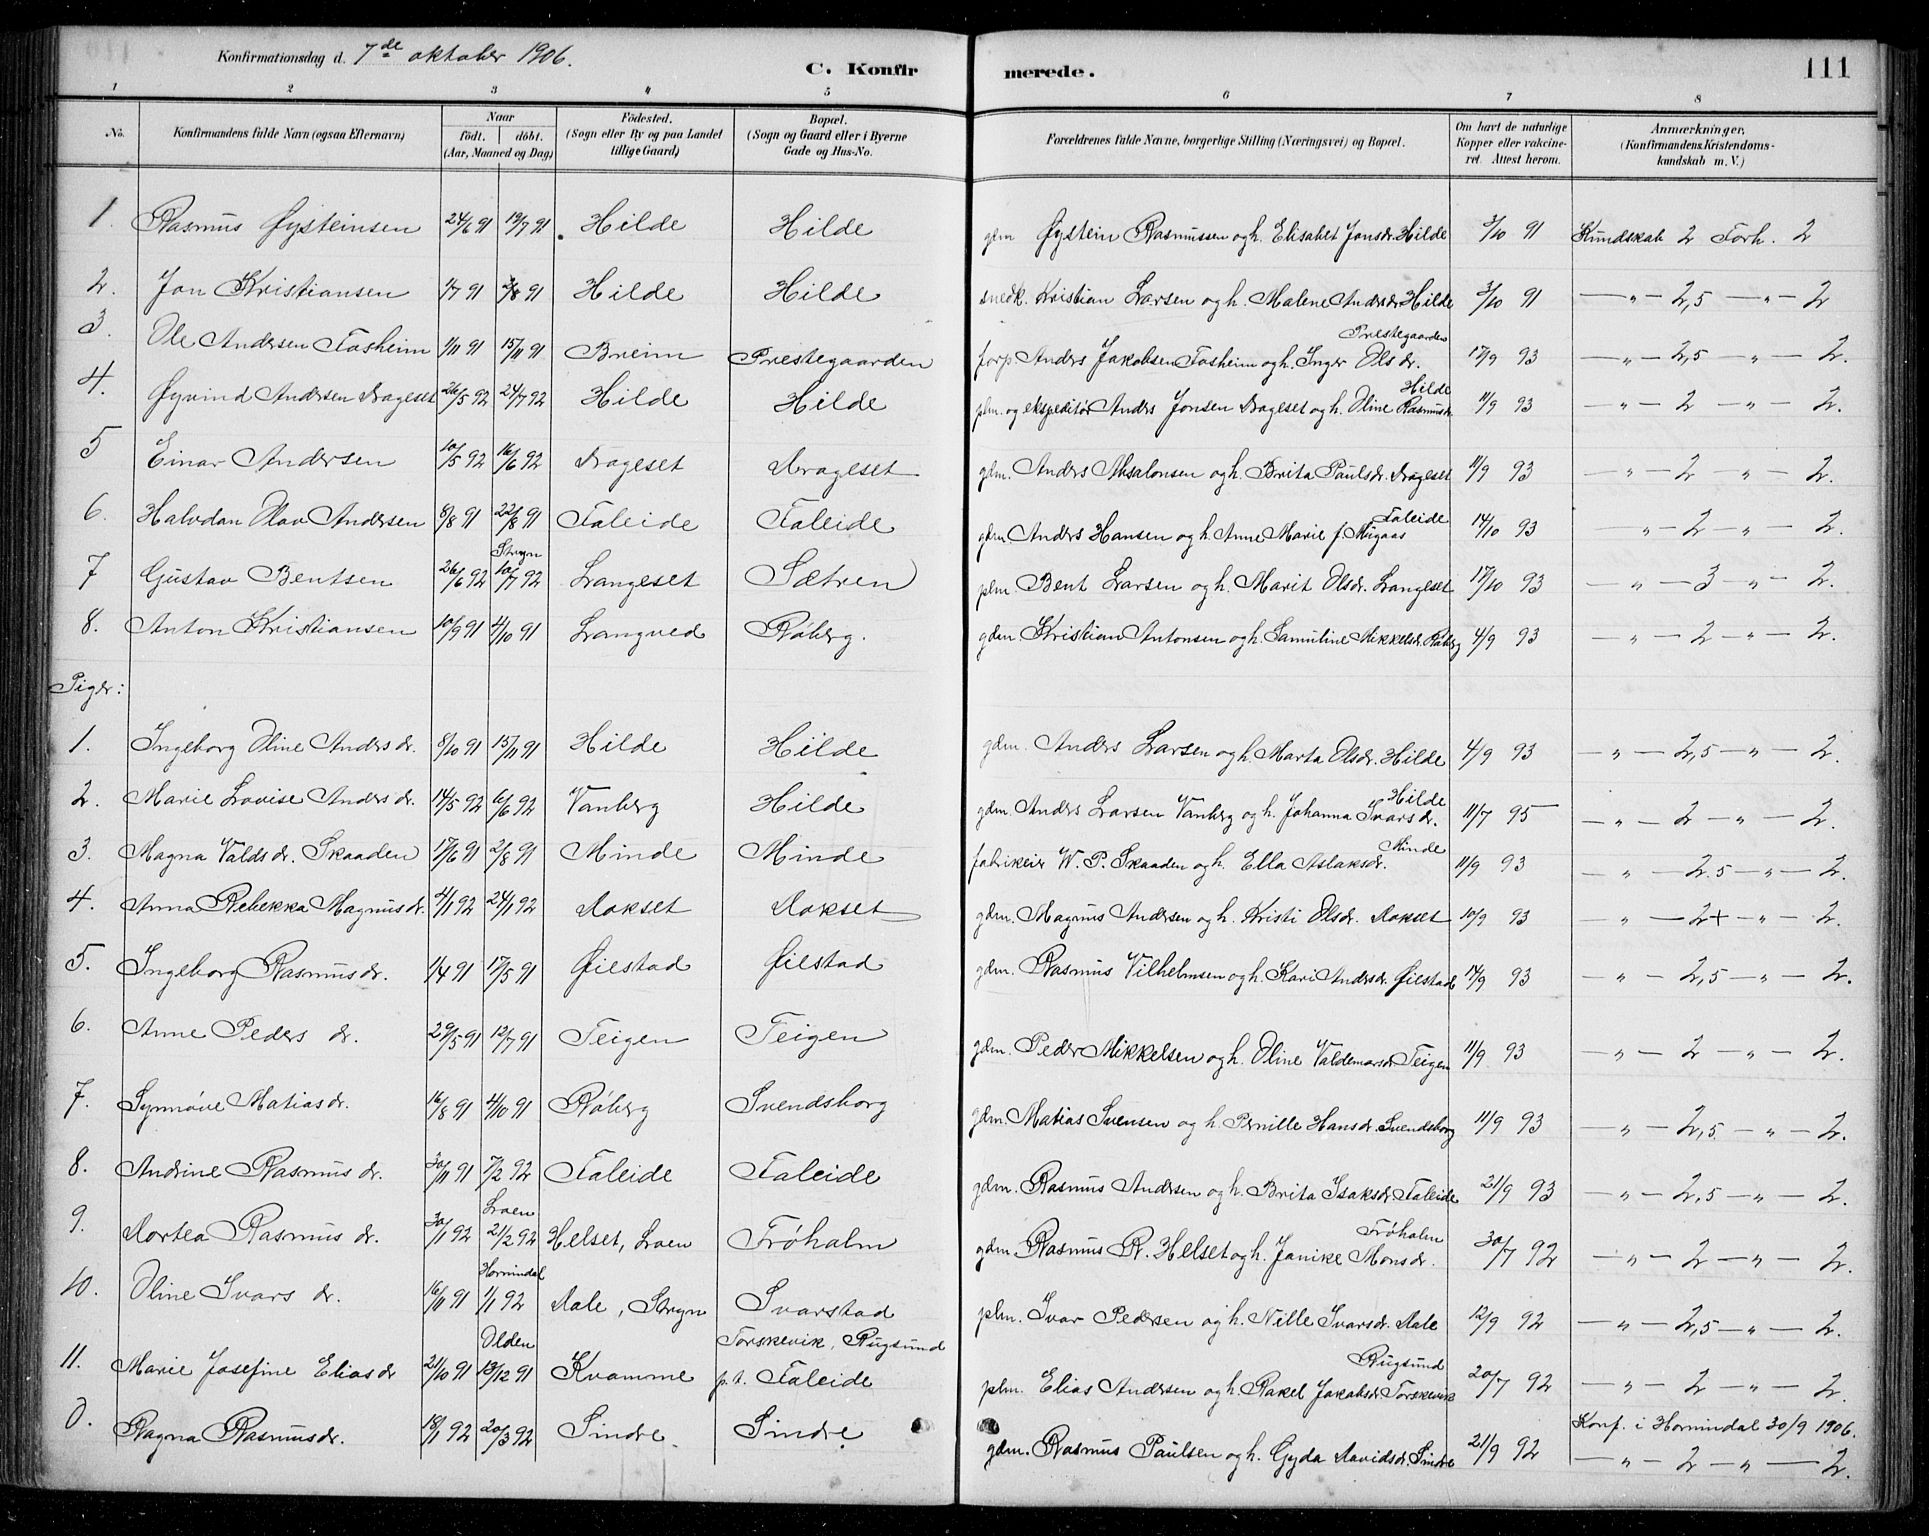 Konfirmationsdag d. 7de oktober 1906.
C. Konfirmerede.
111
1 2 3 4 5 6 7 8
No.
Konfirmandens fulde Navn (ogsaa Efternavn)
Naar
födt. döbt.
(Aar, Maaned og Dag)
Födested.
(Sogn eller By og paa Landet
tillige Gaard)
Bopæl.
(Sogn og Gaard eller i Byerne
Gade og Hus-No.
Forældrenes fulde Navne, borgerlige Stilling (Næringsvei) og Bopæl.
Om havt de naturlige
Kopper eller vakcine-
ret. Attest herom.
Anmærkninger.
(Konfirmandens Kristendoms-
kundskab m. V.)
1. Rasmus Øysteinsen 24/6 91 19/7 91 Hilde Hilde gdm Øystein Rasmussen og h. Elisabet Jonsdr. Hilde 3/10 91 Kundskab 2 Forh. 2
2. Jon Kristiansen 1/7 91 2/8 91 Hilde Hilde snedk. Kristian Larsen og h. Malene Andrsdr Hilde 3/10 91 — " — 2,5 — " — 2
3. Ole Andersen Fosheim 1/11 91 15/11 91 Breim Prestegaarden forp. Anders Jakobsen Fosheim og h. Inger Olsdr. Prestegaarden 17/9 93 — " — 2,5 — " — 2.
4. Øyvind Andersen Drageset 26/5 92 24/7 92 Hilde Hilde plm. og ekspeditør Anders Jonsen Drageset og h. Oline Rasmusdr. Hilde 11/9 93 — " — 2 — " — 2.
5 Einar Andersen 10/5 92 16/6 92 Drageset Drageset gdm. Anders Absalonsen og h. Brita Paulsdr. Drageset 11/9 93 — " — 2 — " — 2.
6. Halvdan Olav Andersen 8/8 91 22/8 91 Faleide Faleide gdm. Anders Hansen og h. Anne Marie f. Mugaas Faleide 14/10 93 — " — 2 — " — 2.
7 Gustav Bentsen 26/6 92 Stryn 10/7 92 Langeset Sætren plm. Bent Larsen og h. Marit Olsdr. Langeset 17/10 93 — " — 3 — " — 2.
8. Anton Kristiansen 10/9 91 4/10 91 Langved Røberg. gdm. Kristian Antonsen og h. Samuline Mikkelsdr. Røberg 4/9 93 — " — 2 — " — 2.
Piger:
1. Ingeborg Oline Andersdr. 8/10 91 15/11 91 Hilde Hilde gdm. Anders Larsen og h. Marta Olsdr. Hilde 4/9 93 — " — 2,5 — " — 2.
2. Marie Lovise Andersdr. 14/5 92 6/6 92 Vanberg Hilde gdm. Anders Larsen Vanberg og h. Johanna Ivarsdr. Hilde 11/7 95 — " — 2 — " — 2.
3. Magna Valdsdr. Skaaden 17/6 91 2/8 91 Minde Minde fabrikeier W. P. Skaaden og h. Ella Aslaksdr. Minde 11/9 93 — " — 2.5 — " — 2.
4. Anna Rebekka Magnusdr. 4/1 92 24/1 92 Dokset Dokset gdm. Magnus Andersen og h. Kristi Olsdr. Dokset 10/9 93 — " — 2+ — " — 2.
5. Ingeborg Rasmusdr. 1/4 91 17/5 91 Øilestad Øilestad gdm. Rasmus Vilhelmsen og h. Kari Andrsdr. Øilestad 17/9 93 — " — 2,5 — " — 2.
6. Anne Peders dr. 29/5 91 12/7 91 Teigen Teigen gdm. Peder Mikkelsen og h. Oline Valdemarsdr. Teigen 11/9 93 — " — 2 — " — 2.
7. Synnøve Matiasdr. 16/8 91 4/10 91 Røberg Svendsborg gdm. Matias Svensen og h. Pernille Hansdr. Svendsborg 11/9 93 — " — 2,5 — " — 2.
8. Andrine Rasmusdr. 30/11 91 7/2 92 Faleide Faleide gdm. Rasmus Andersen og h. Brita Isaksdr. Faleide 21/9 93 — " — 2,5 — " — 2.
9. Dortea Rasmusdr. 30/1 92 Loen 21/2 92 Helset, Loen Frøholm gdm. Rasmus R. Helset og h. Janike Monsdr. Frøholm 30/7 92 — " — 2 — " — 2.
10. Oline Ivars dr. 16/11 91 Hornindal 1/1 92 Dale, Stryn Svarstad plm. Ivar Pedersen og h. Nille Ivarsdr. Dale 12/9 92 — " — 2,5 — " — 2.
11. Marie Josefine Eliasdr 21/10 91 Olden 13/12 91 Kvamme Torskevik, Rugsund p.t. Faleide plm. Elias Andersen og h. Rakel Jakobsdr Torskevik Rugsund 20/7 92 — " — 2 — " — 2.
0. Ragna Rasmusdr. 18/1 92 20/3 92 Sindre Sindre gdm. Rasmus Paulsen og h. Gyda Davidsdr. Sindre 21/9 92 Konf. i Hornindal 30/9 1906. — " — 2 — " — 2.